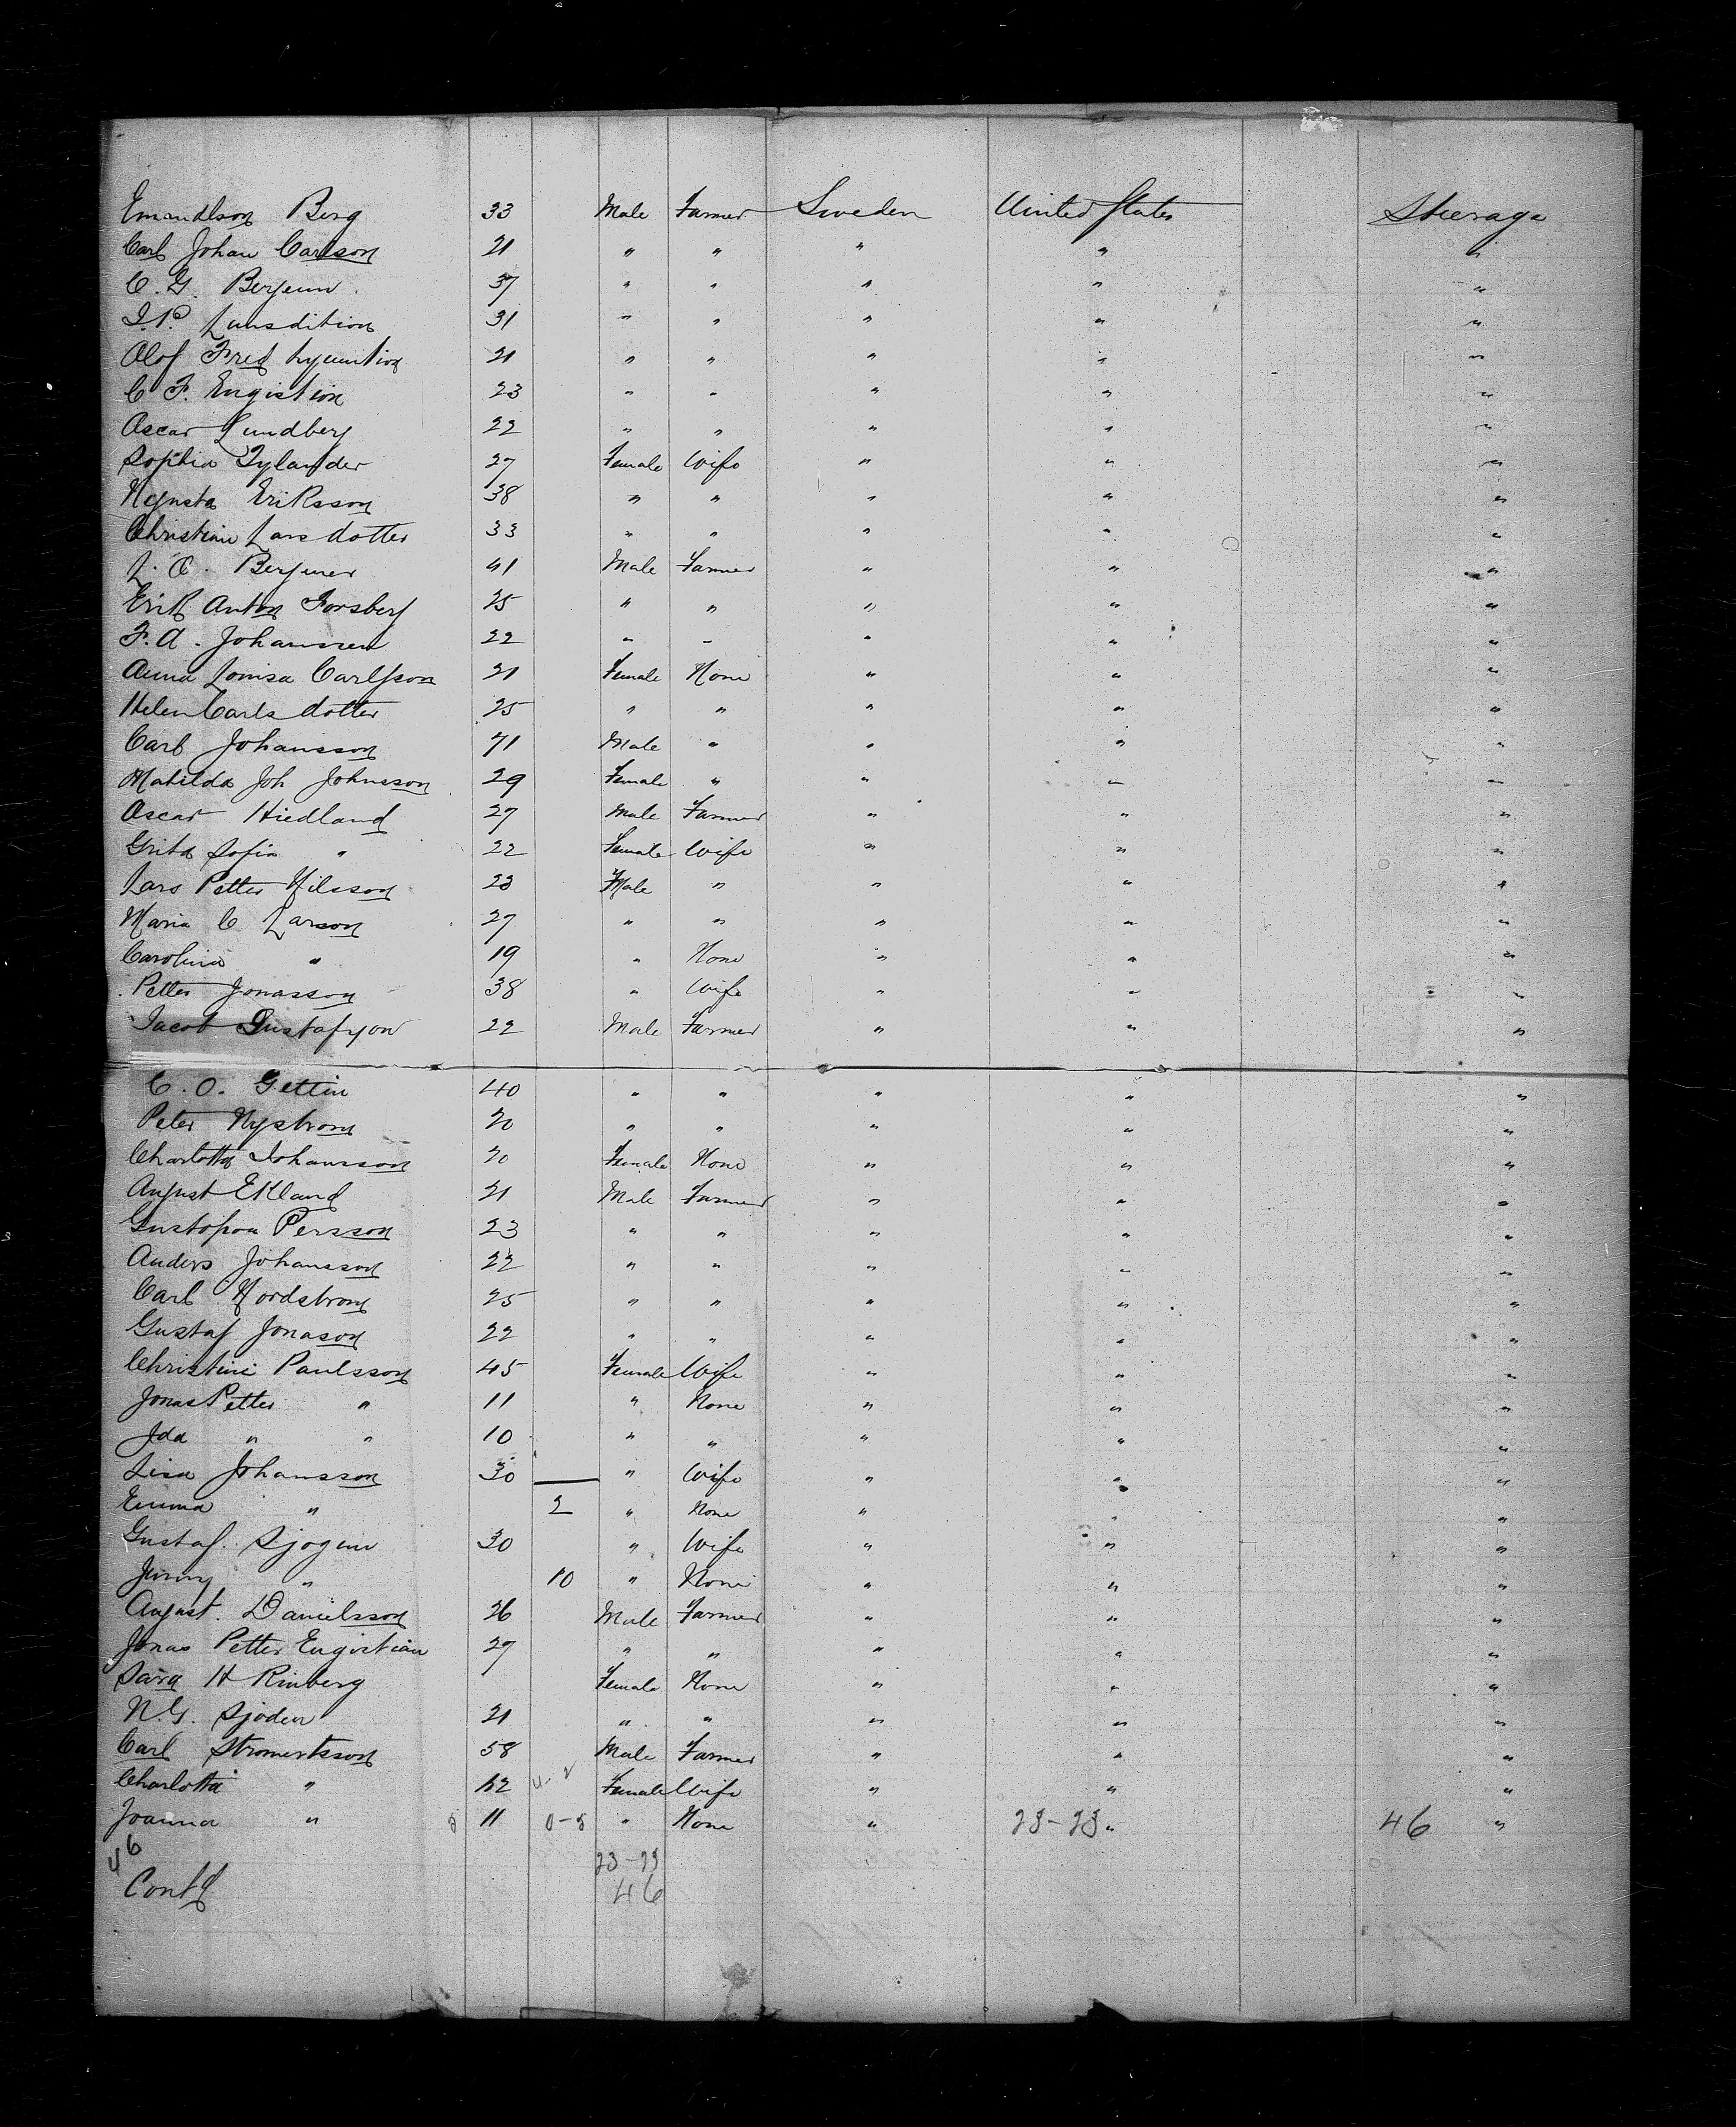 Emandlson Berg 33 Male Farmer Sweden United States Steerage
Carl Johan Carlson 21 " " " " "
C. G. Berjeun 37 " " " " "
J. P. Larsdition 31 " " " " "
Olof Fred 21 " " " " "
C F. Engistion 23 " " " " "
Oscar Lundberg 22 " " " " "
Sophia Tylander 27 Female Wife " " "
Eriksson 38 " " " " "
Christine Lars dotter 33 " " " " "
L. O. Berjmer 41 Male Farmer " " "
Erik Anton Forsberg 25 " " " " "
F. A. Johanssen 22 " " " " "
Anna Lovisa Carlsson 21 Female None " " "
Helen Carls dotter 25 " " " " "
Carl Johansson 71 Male " " " "
Matilda Joh Johnsson 29 Female " " " "
Oscar Hiedland 27 Male Farmer " " "
Grita Sofia " 22 Female Wife " " "
Lars Petter Nilsson 23 Male " " " "
Maria C Larson 27 " " " " "
Carolina " 19 " None " " "
Petter Jonasson 38 " Wife " " "
Jacob Gustafson 22 Male Farmer " " "
C. O. Gettin 40 " " " " "
Peter Nystrom 20 " " " " "
Charlotta Johansson 20 Female None " " "
August Ekland 21 Male Farmer " " "
Persson 23 " " " " "
Anders Johansson 22 " " " " "
Carl Nordstrom 25 " " " " "
Gustaf Jonason 22 " " " " "
Christine Paulsson 45 Female Wife " " "
Jonas Petter " 11 " None " " "
Ida " " 10 " " " " "
Lisa Johansson 30 — " Wife " " "
Emma " 2 " None " " "
Gustaf. Sjogun 30 " Wife " " "
Jenny " 10 " None " " "
August. Danielsson 26 Male Farmer " " "
Jonas Petter Engistian 27 " " " " "
Sara H Rinberg Female None " " "
N. G. Sjoden 21 " " " " "
Carl Stromertsson 58 Male Farmer " " "
Charlotta " 52 Female Wife " " "
Joanna " 5 11 0-5 " None " 23-23 " 46 "
46 23-23
Contd 46